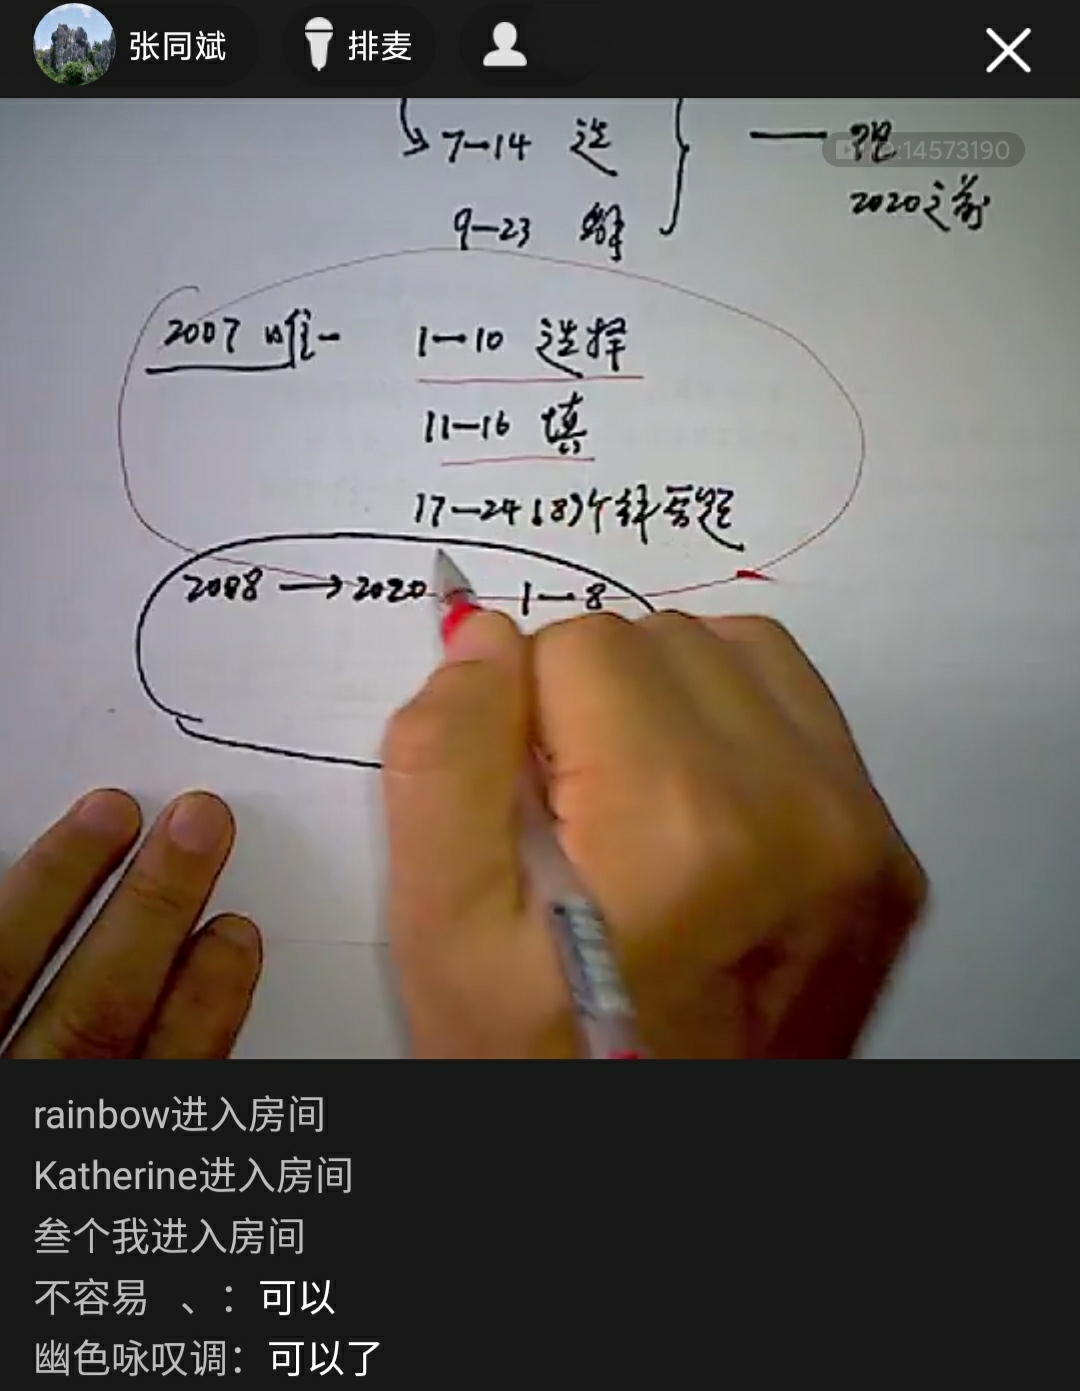 张同斌 排麦
7—14 选
9—23 解
2020之前
ID:14573190
2007 唯一 1—10 选择
11—16 填
17—24 (8)个解答题
2008 → 2020 1—8
rainbow进入房间
Katherine进入房间
叁个我进入房间
不容易 、：可以
幽色咏叹调：可以了